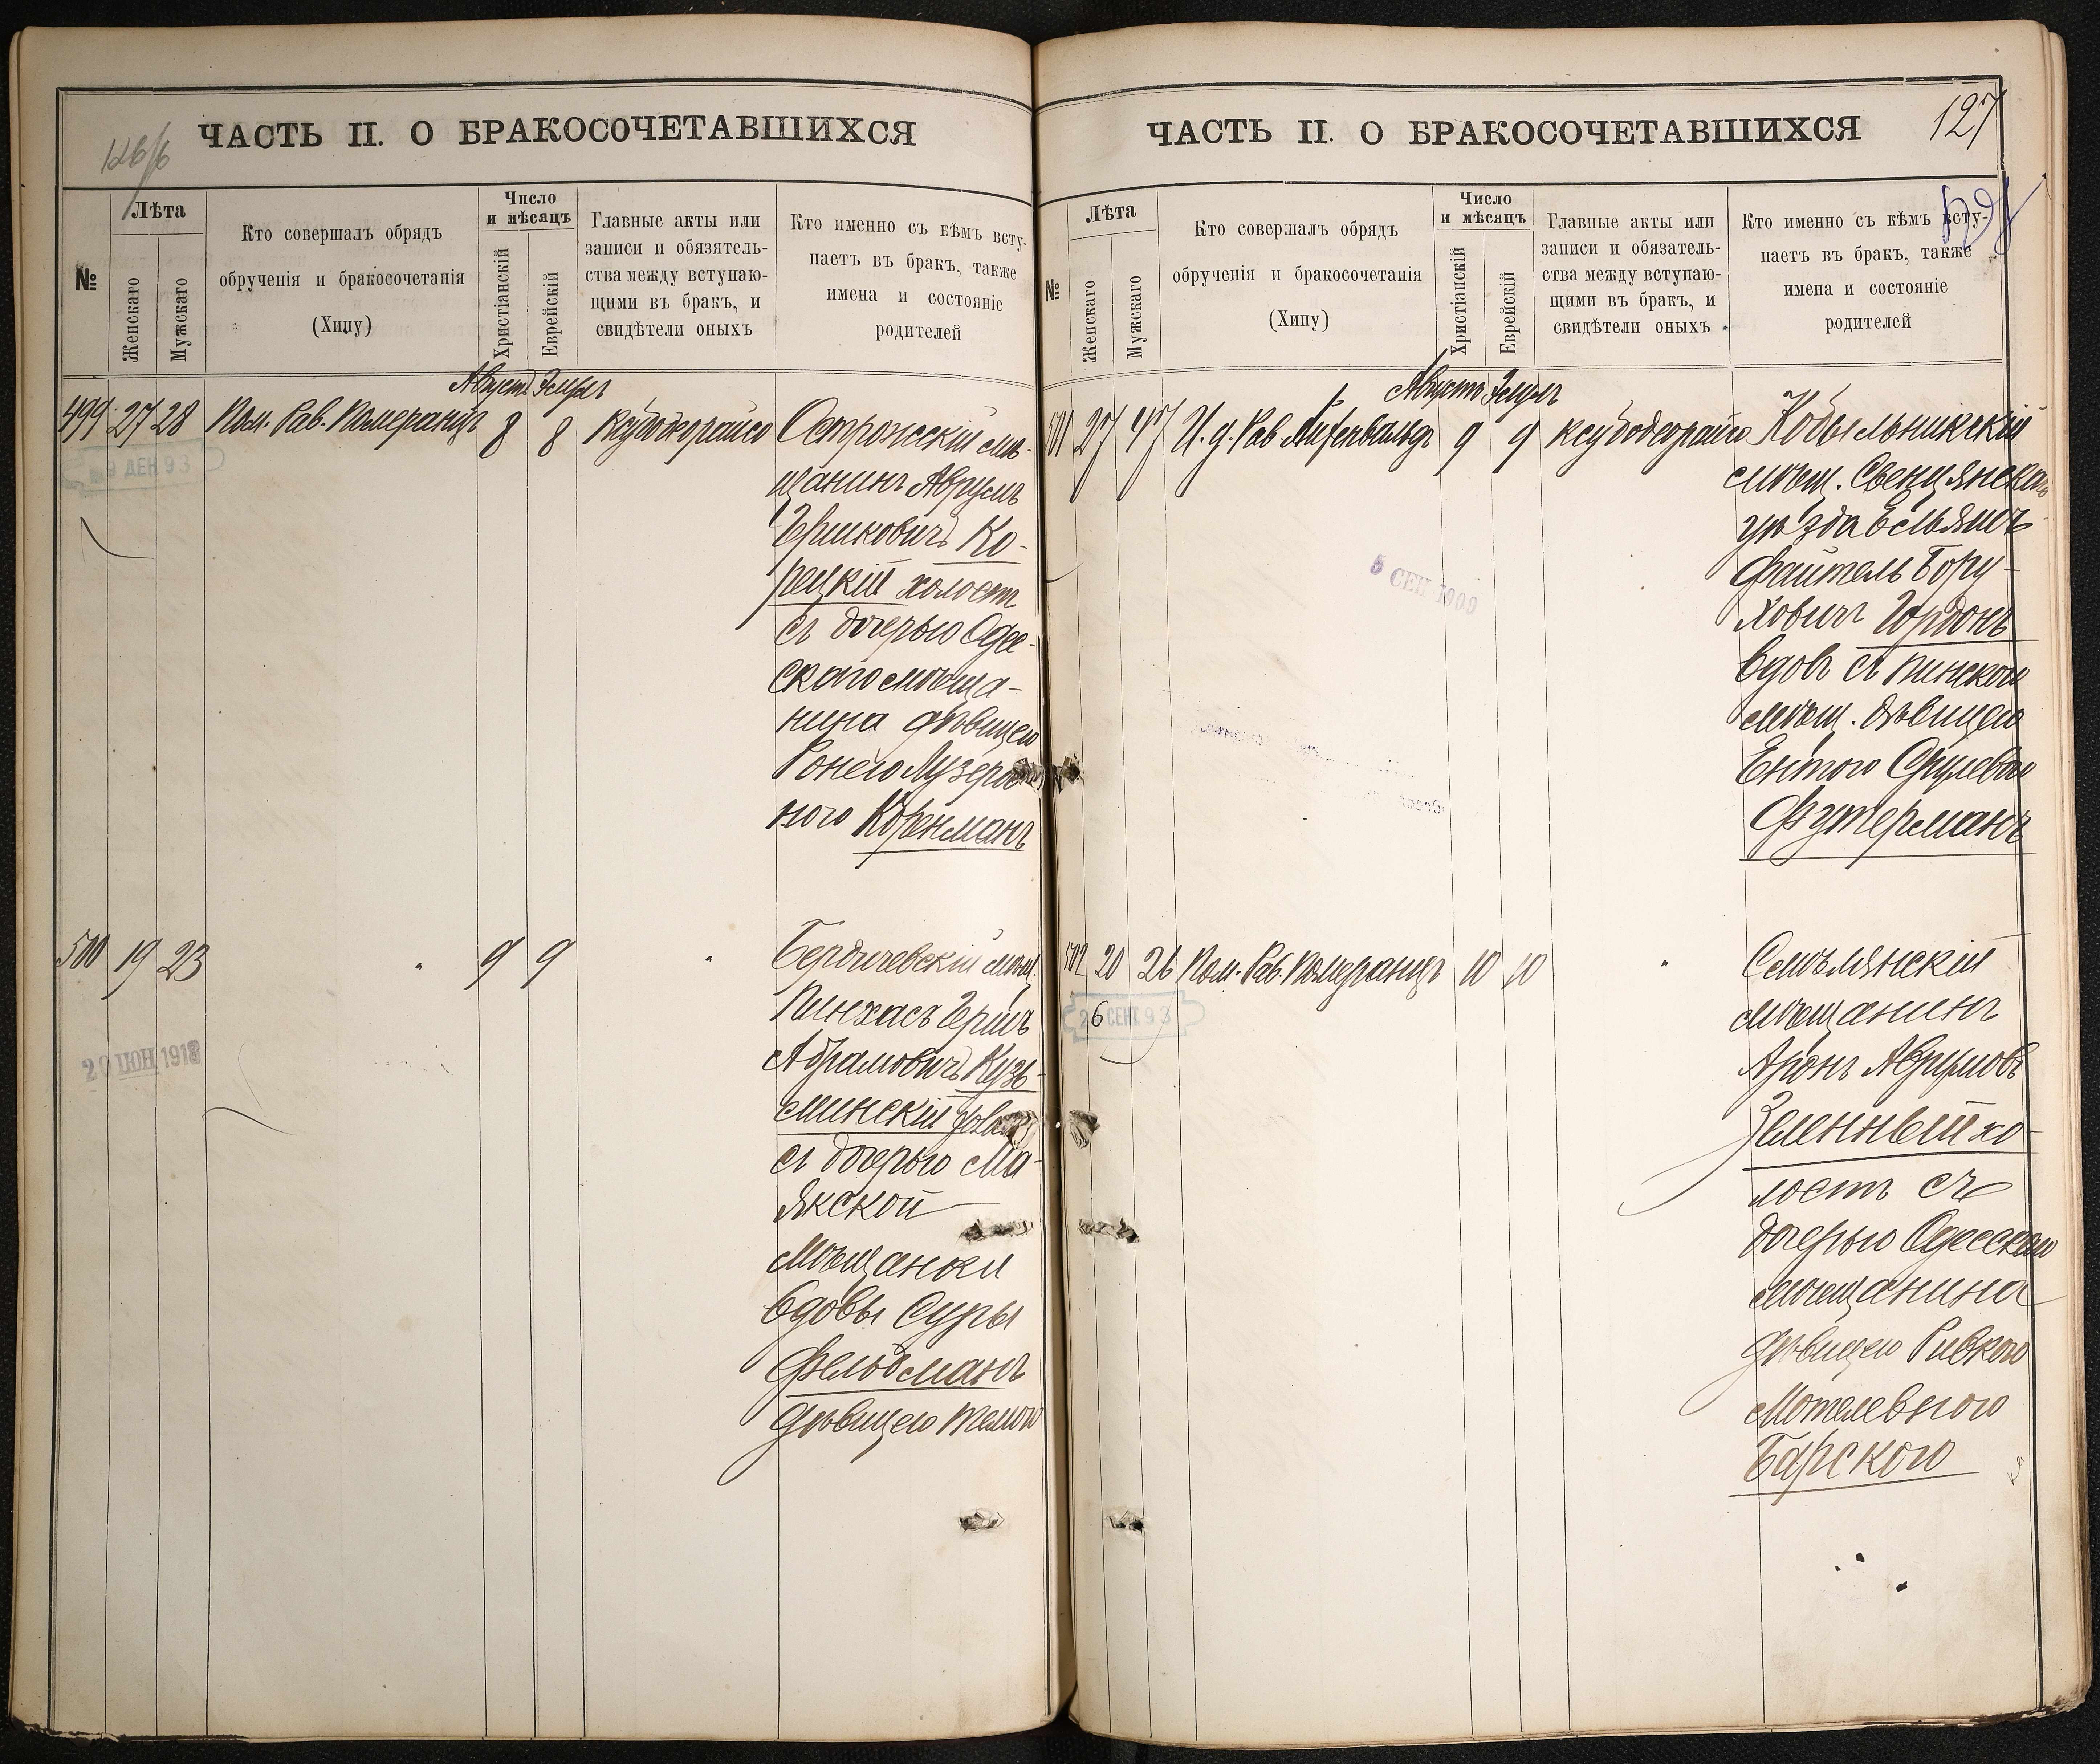 ЧАСТЬ II. О БРАКОСОЧЕТАВШИХСЯ
№
Лѣта
Женскаго
Мужскаго
Кто совершалъ обрядъ
обрученія и бракосочетанія
(Хипу)
Число
и мѣсяцъ
Христіанскій
Еврейскій
Главные акты или
записи и обязатель-
ства между вступаю-
щими въ бракъ, и
свидѣтели оныхъ
Кто именно съ кѣмъ всту-
паетъ въ бракъ, также
имена и состояніе
родителей
Августъ Элулъ
499 27 28 Пом. Рав. Померанцъ 8 8 Ксубодорайсо
9 ДЕК 93
Острожскій мѣ-
щанинъ Аврумъ
Гершковичъ Ко-
рецкій холостъ
съ дочерью Одес-
скаго мѣща-
нина дѣвицею
Ронею Лузеров-
ною Корнманъ
500 19 23 " 9 9 "
20 ИЮН 1913
Бердичевскій мѣщ.
Пинхасъ Гершъ
Абрамовичъ Кузь-
минскій
съ дочерью Ма-
якской
мѣщанки
вдовы Суры
Фельдманъ
дѣвицею
ЧАСТЬ II. О БРАКОСОЧЕТАВШИХСЯ
127
№
Лѣта
Женскаго
Мужскаго
Кто совершалъ обрядъ
обрученія и бракосочетанія
(Хипу)
Число
и мѣсяцъ
Христіанскій
Еврейскій
Главные акты или
записи и обязатель-
ства между вступаю-
щими въ бракъ, и
свидѣтели оныхъ
Кто именно съ кѣмъ всту-
паетъ въ бракъ, также
имена и состояніе
родителей
Августъ Элулъ
501 27 47 И. д. Рав 9 9 Ксубодорайсо
5 СЕН 1909
Кобыльникскій
мѣщ. Свенцянскаго
уѣзда Ельяшъ
Файтель Бору-
ховичъ Гордонъ
вдовъ съ Пинскою
мѣщ. дѣвицею
Ентою Срулевою
Футерманъ
502 20 26 Пом. Рав. Померанцъ 10 10 "
26 СЕНТ. 93
Смѣлянскій
мѣщанинъ
Аронъ Аврумовъ
Зеленный хо-
лостъ съ
дочерью Одесскаго
мѣщанина
дѣвицею Ривкою
Мотелевною
Барскою